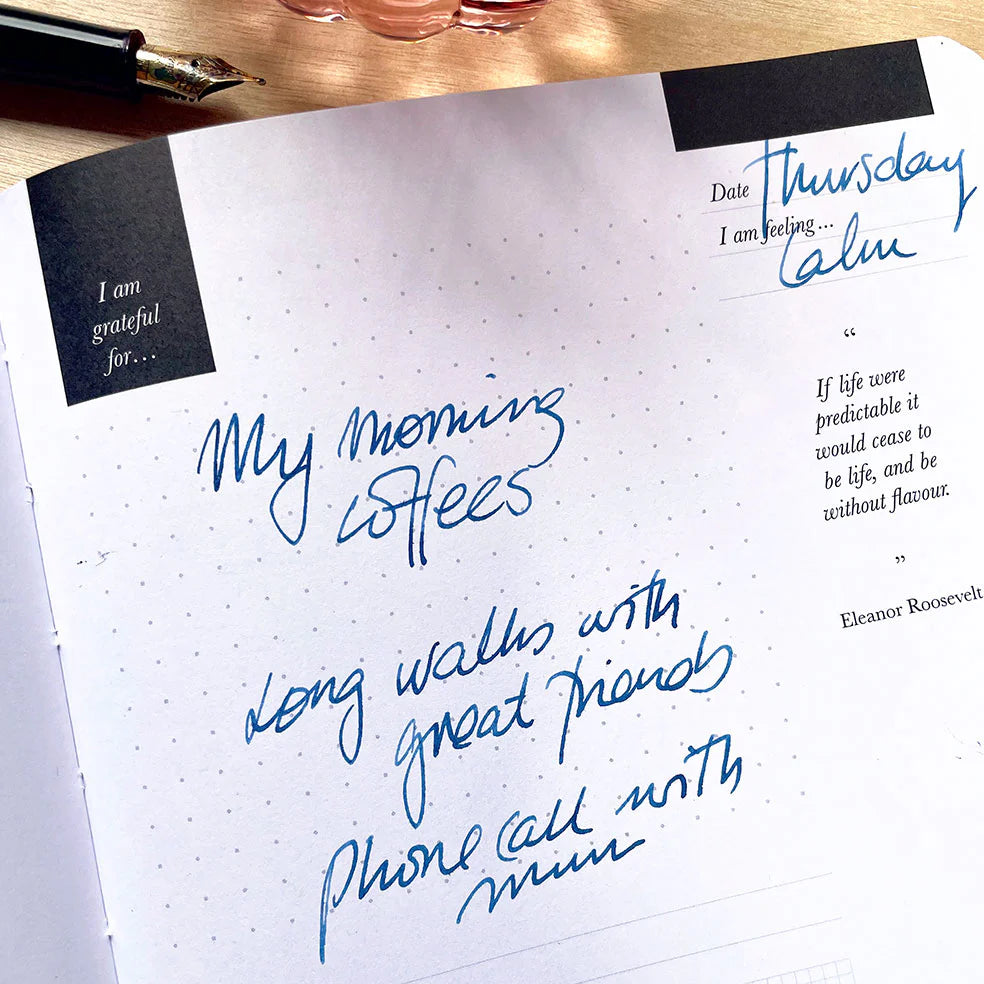 I am
grateful
for...
Date Thursday
I am feeling...
Calm
My morning
coffees
Long walks with
great friends
Phone call with
mum
“
If life were
predictable it
would cease to
be life, and be
without flavour.
”
Eleanor Roosevelt